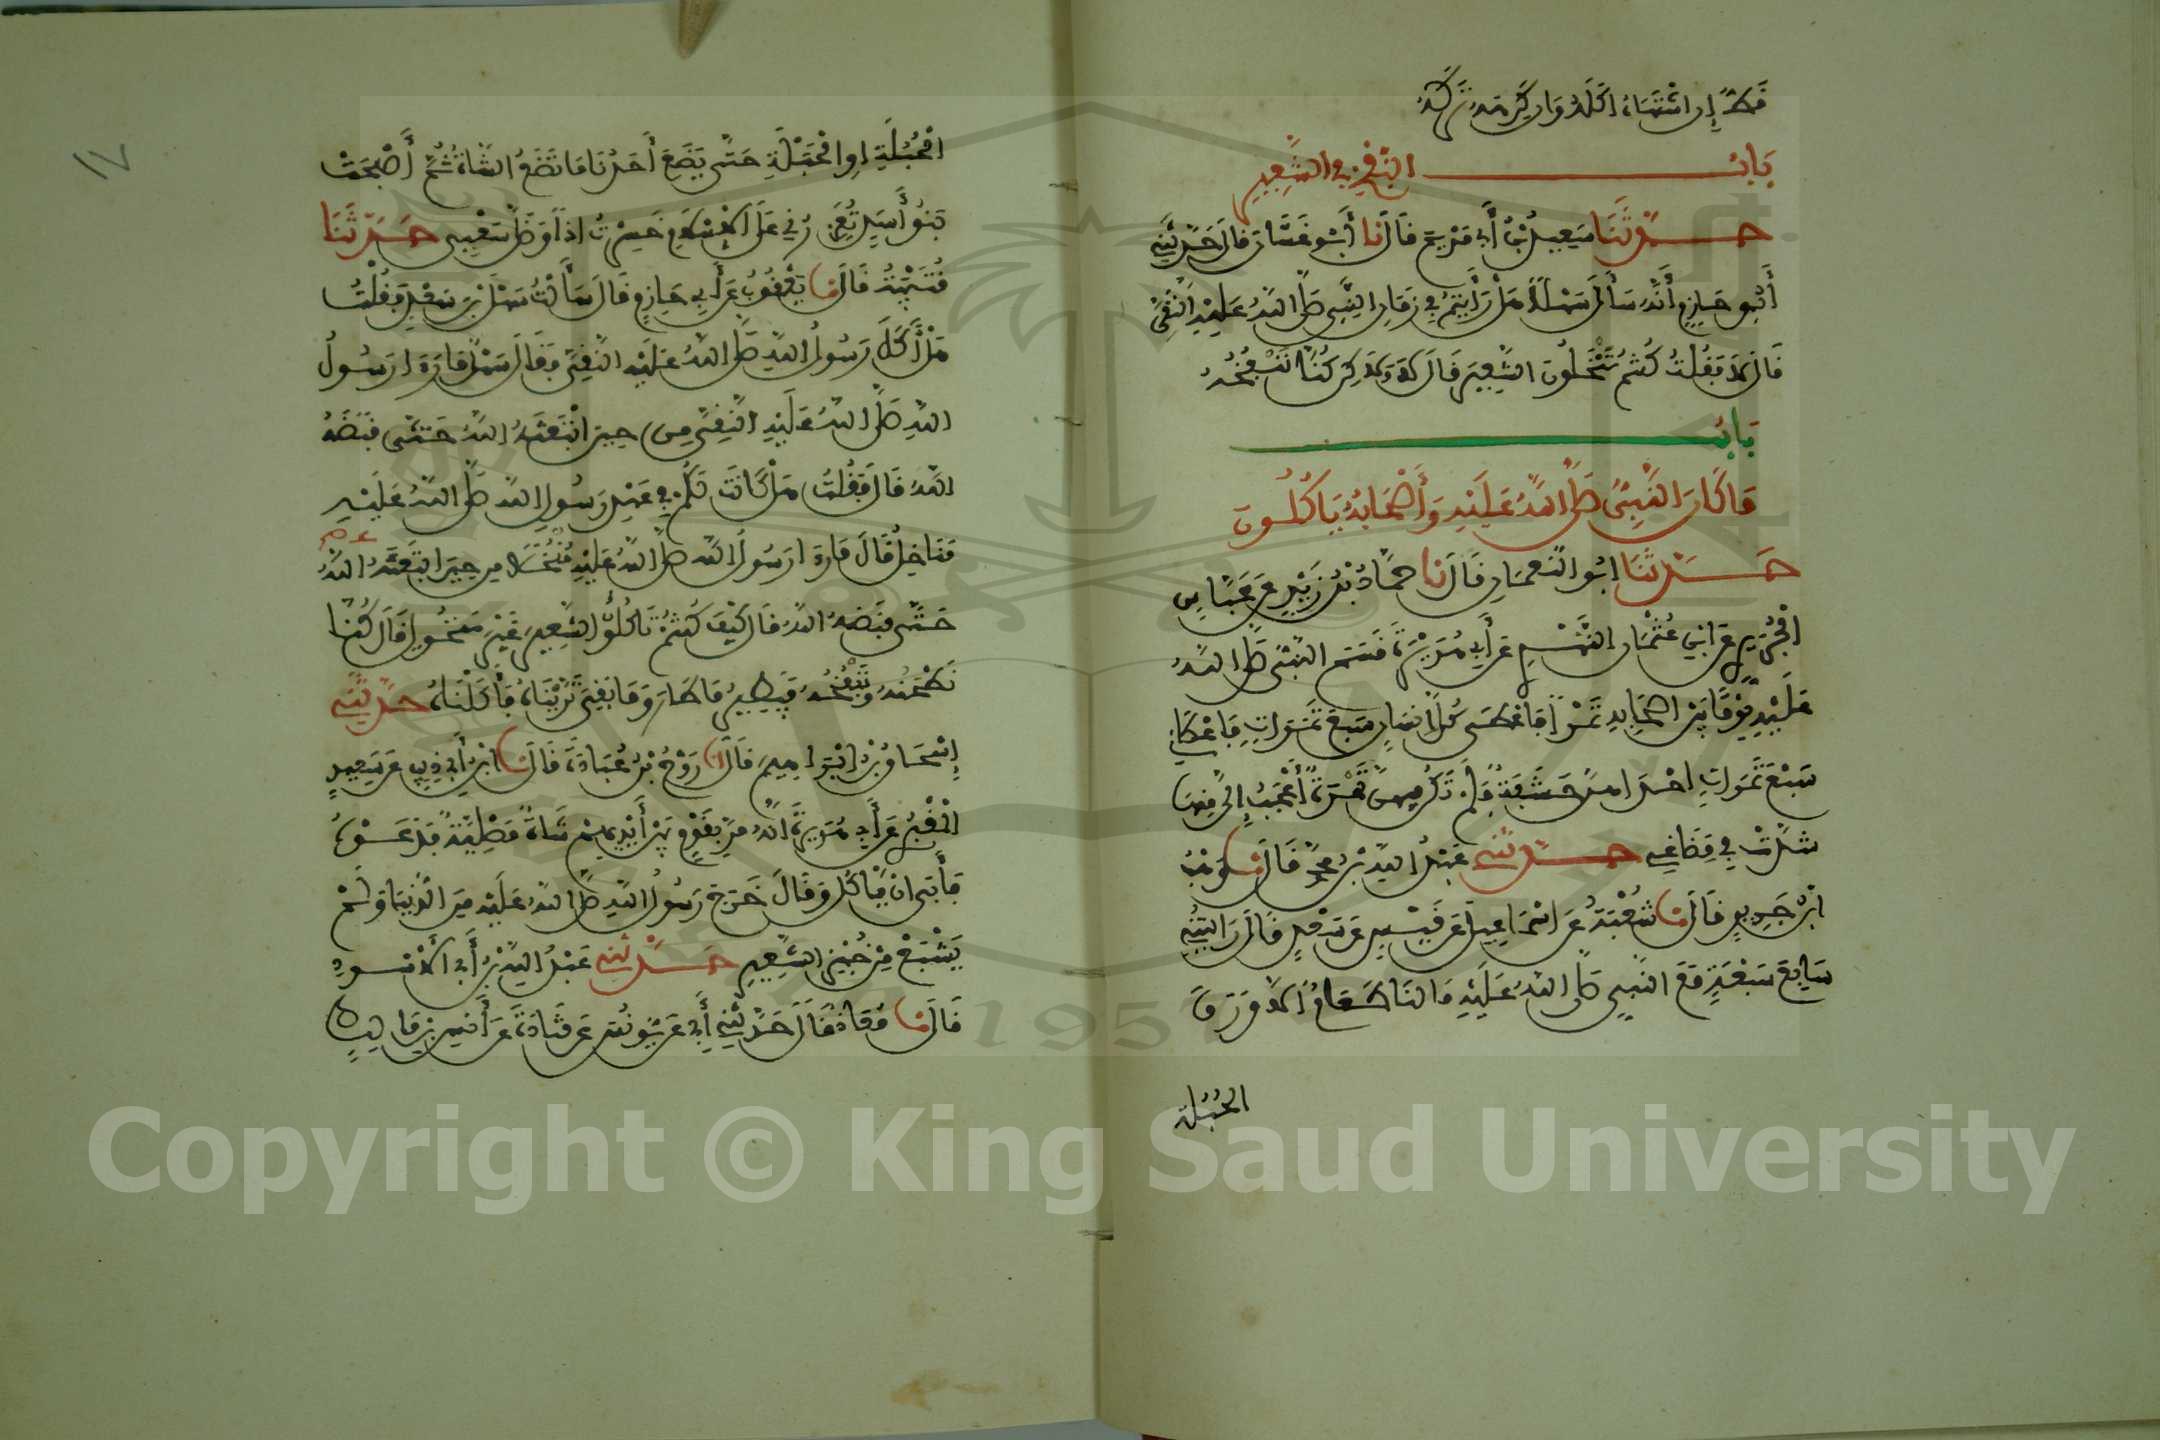 قط إن اشتهاه أكله وإن كرهه تركه
باب النفخ في الشعير
حدثنا سعيد بن أبي مريم قال نا أبو غسان قال حدثني
أبو حازم أنه سأل سهلا هل رأيتم في زمان النبي صلى الله عليه النقي
قال لا فقلت كنتم تنخلون الشعير قال لا ولكن كنا ننفخه
باب
ما كان النبي صلى الله عليه وأصحابه يأكلون
حدثنا أبو النعمان قال نا حماد بن زيد عن عباس
الجريري عن أبي عثمان النهدي عن أبي هريرة قسم النبي صلى الله
عليه يوما بين أصحابه تمرا فأعطى كل إنسان سبع تمرات فأعطاني
سبع تمرات إحداهن حشفة فلم تكن فيهن تمرة أعجب إلي منها
شدت في مضاغي حدثني عبد الله بن محمد قال نا وهب
ابن جرير قال نا شعبة عن إسماعيل عن قيس عن سعد قال رأيتني
سابع سبعة مع النبي صلى الله عليه ما لنا طعام إلا ورق
الحبلة
الحبلة أو الحبلة حتى يضع أحدنا ما تضع الشاة ثم أصبحت
بنو أسد تعزرني على الإسلام خسرت إذا وضل سعيي حدثنا
قتيبة قال نا يعقوب عن أبي حازم قال سألت سهل بن سعد فقلت
هل أكل رسول الله صلى الله عليه النقي فقال سهل ما رأى رسول
الله صلى الله عليه النقي من حين ابتعثه الله حتى قبضه
الله قال فقلت هل كانت لكم في عهد رسول الله صلى الله عليه
مناخل قال ما رأى رسول الله صلى الله عليه منخلا من حين ابتعثه الله
حتى قبضه الله قال كيف كنتم تأكلون الشعير غير منخول قال كنا
نطحنه وننفخه فيطير ما طار وما بقي ثريناه فأكلناه حدثني
إسحاق بن إبراهيم قال نا روح بن عبادة قال نا ابن أبي ذيب عن سعيد
المقبري عن أبي هريرة أنه مر بقوم بين أيديهم شاة مصلية فدعوه
فأبى أن يأكل وقال خرج رسول الله صلى الله عليه من الدنيا ولم
يشبع من خبز الشعير حدثني عبد الله بن أبي الأسود
قال نا معاذ قال حدثني أبي عن يونس عن قتادة عن أنس بن مالك
١٧
Copyright © King Saud University
1957